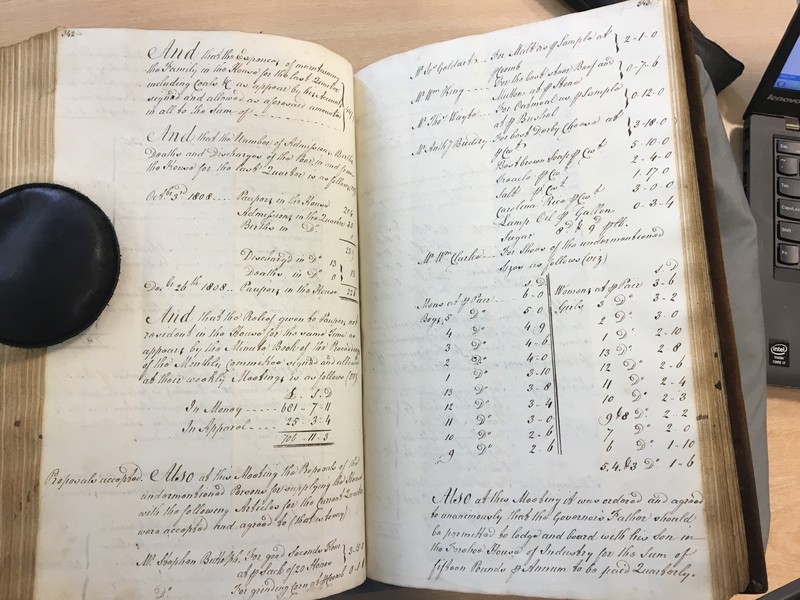 342
And that the Expences of maintaining
the Family in the House for the last Quarter
including Coals &c as appear by the Account
signed and allowed as aforesaid amounted
in all to the Sum of
And that the Number of Admissions, Births,
Deaths and Discharges of the Poor in and from
the House for the last Quarter is as follows
Octbr 3rd 1808 .... Paupers in the House
Admissions in the Quarter
Births in Do
Discharged in Do 13
Deaths in Do 0
Decbr 26th 1808 .. Paupers in the House
And that the Relief given to Paupers not
resident in the House for the same Time as
appears by the Minute Book of the Proceedings
of the Monthly Committee signed and allowed
at their weekly Meetings is as follows (viz)
£ . S . D
In Money ----- 681 - 7 - 11
In Apparel ---- 25 - 3 - 4
706 - 11 - 3
Proposals accepted Also at this Meeting the Proposals of the
undermentioned Persons for supplying the House
with the following Articles for the Current Quarter
were accepted and agreed to (that is to say)
Mr. Stephen For good Seconds Flour
at ⅌ Sack of 20 Stone
Do For grinding Corn at ⅌ Comb
343
For Malt as ⅌ Sample at
⅌ Comb } 2 - 1 - 0
Mr. Wm King For the best Steer Beef and
Mutton at ⅌ Stone } 0 - 7 - 6
Mr. Thos For Oatmeal as ⅌ Sample
at ⅌ Bushel } 0 - 12 - 0
Mr. Anthy For best Derby Cheese at
⅌ Cwt } 3 - 18 - 0
Best brown Soap ⅌ Cwt 5 - 10 - 0
Treacle ⅌ Cwt 2 - 4 - 0
Salt ⅌ Cwt 1 - 17 - 0
Carolina Rice ⅌ Cwt 3 - 0 - 0
Lamp Oil ⅌ Gallon 0 - 3 - 4
Sugar 8d & 9 ⅌ lb.
Mr. Wm Clarke For Shoes of the undermentioned
Sizes as follows (viz)
S . D
S . D
Mens at ⅌ Pair 6 - 0 Womens at ⅌ Pair 3 - 6
Boys, 5 Do 5 - 0 Girls 3 Do 3 - 2
4 Do 4 - 9 2 Do 3 - 0
3 Do 4 - 6 1 Do 2 - 10
2 Do 4 - 0 13 Do 2 - 8
1 Do 3 - 10 12 Do 2 - 6
13 Do 3 - 8 11 Do 2 - 4
12 Do 3 - 4 10 Do 2 - 3
11 Do 3 - 0 9 & 8 Do 2 - 2
10 Do 2 - 6 7 Do 2 - 0
9 Do 2 - 6 6 Do 1 - 10
5, 4, & 3 Do 1 - 6
Also at this Meeting it was ordered and agreed
to unanimously that the Governors Father should
be permitted to lodge and board with his Son in
the House of Industry for the Sum of
fifteen Pounds ⅌ Annum to be paid Quarterly.
lenovo
Esc
Tab
CapsLock
Shift
Fn
intel